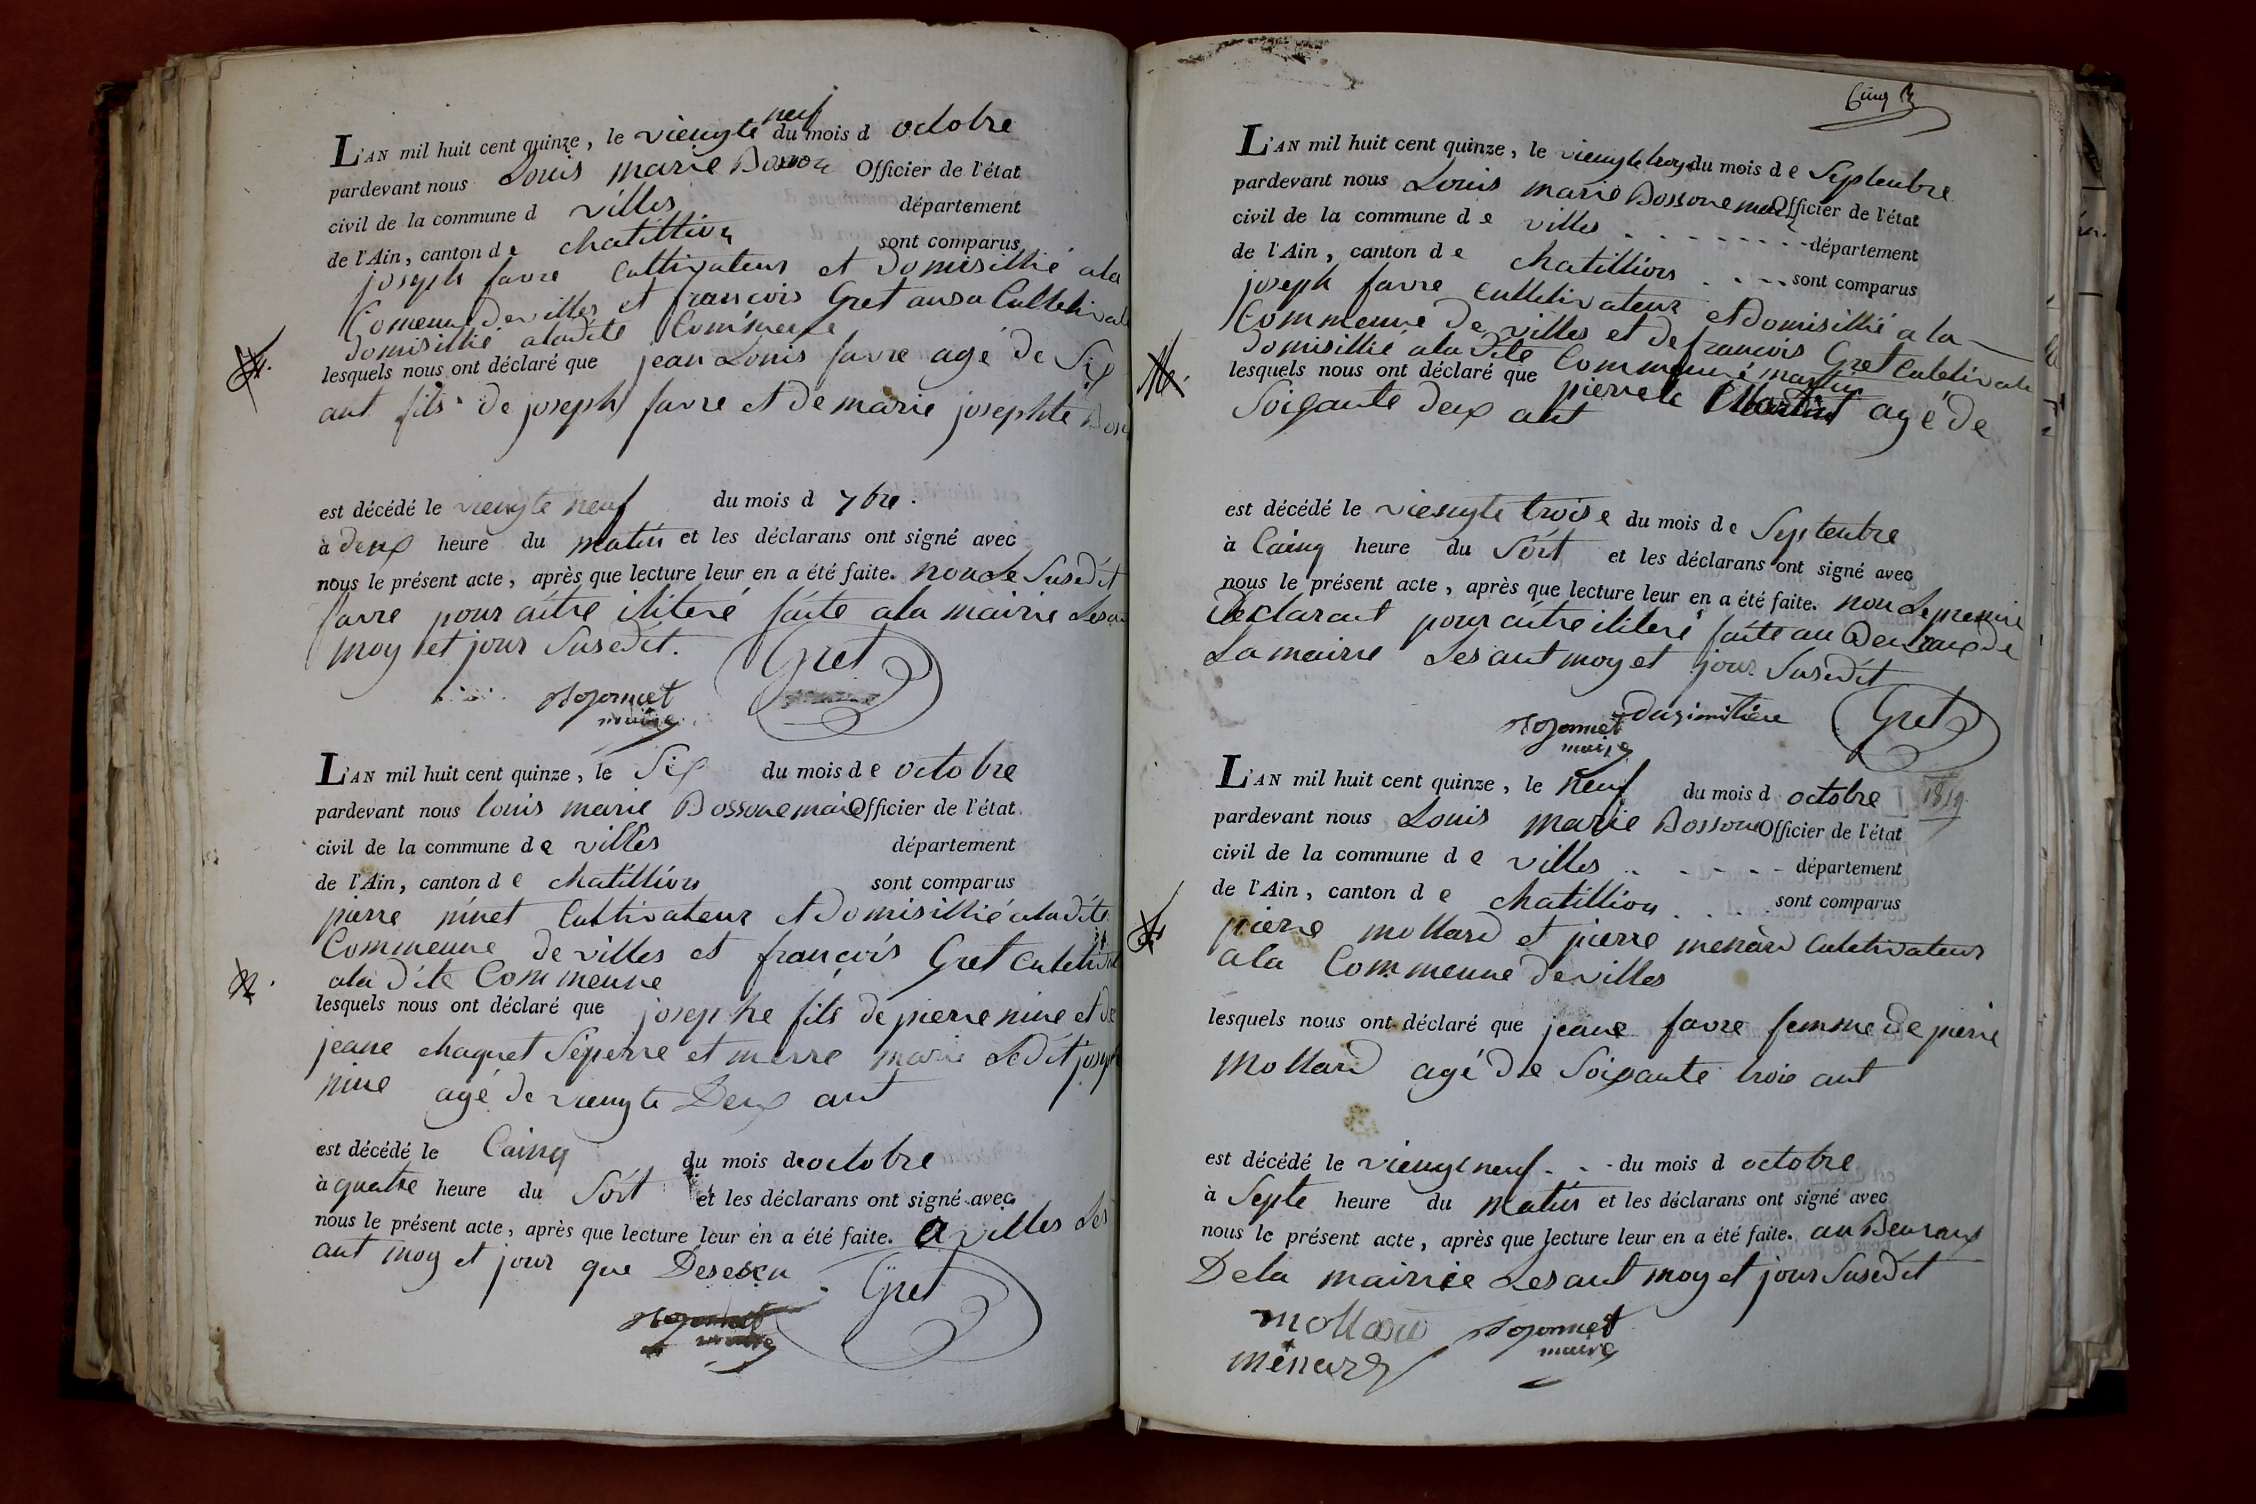 neuf
L'AN mil huit cent quinze, le viengte du mois d octobre
pardevant nous Louis marie Bossone Officier de l'état
civil de la commune d villes département
de l'Ain, canton de chatillion sont comparus
joseph favre Cultivateur et domisillié ala
Comeune de villes et francois Gret ausu Culletival
domisillié aladite Commeune
lesquels nous ont déclaré que jean Louis favre agé de Six
ant fils de joseph favre et de marie josephte
est décédé le viengte neuf du mois d 7bre.
à deux heure du matin et les déclarans ont signé avec
nous le présent acte, après que lecture leur en a été faite. non Le Susedit
favre pour aitre iliteré faite ala mairie Lesan
moy et jour Susedit.
Gret
maire
L'AN mil huit cent quinze, le Six du mois de octobre
pardevant nous louis marie Bossone maire Officier de l'état
civil de la commune de villes département
de l'Ain, canton de chatillion sont comparus
pierre ninet Cultivateur et domisillié aladite
Commeune de villes et françois Gret
ala dite Commeune
lesquels nous ont déclaré que josephe fils de pierre nine et de
jeane chaquet Sepierre et merre marie Ledit joseph
nine agé de viengte Deux ant
est décédé le Cainq du mois de octobre
à quatre heure du Sôit et les déclarans ont signé avec
nous le présent acte, après que lecture leur en a été faite. A villes Les
ant moy et jour que Deseseu
Gret
maire
Cinq
L'AN mil huit cent quinze, le viengte troys du mois de Septeubre
pardevant nous Louis marie Bossone maire Officier de l'état
civil de la commune de villes département
de l'Ain, canton de chatillion sont comparus
joseph favre culletivateur et domisillié a la
Commeune de villes et de francois Gret
domisillié ala dite Commeune
lesquels nous ont déclaré que pierre martin agé de
Soixante deux ant
est décédé le viengte troise du mois de Septeubre
à Cainq heure du Sôit et les déclarans ont signé avec
nous le présent acte, après que lecture leur en a été faite. non Le premié
Declarant pour aitre ilitere faite au Beuraux de
La mairie Les ant moy et jour Susedit
maire
Gret
L'AN mil huit cent quinze, le neuf du mois d octobre 1819
pardevant nous Louis marie Bossone Officier de l'état
civil de la commune de villes département
de l'Ain, canton de chatillion sont comparus
pierre mollard et pierre menard culetivateur
ala Commeune de villes
lesquels nous ont déclaré que jeane favre femme de pierre
Mollard agé de Soixante troie ant
est décédé le viengt neuf du mois d octobre
à Septe heure du Matin et les déclarans ont signé avec
nous le présent acte, après que lecture leur en a été faite. au Beuraux
De la mairie Les ant moy et jour Susedit
mollard
maire
menard